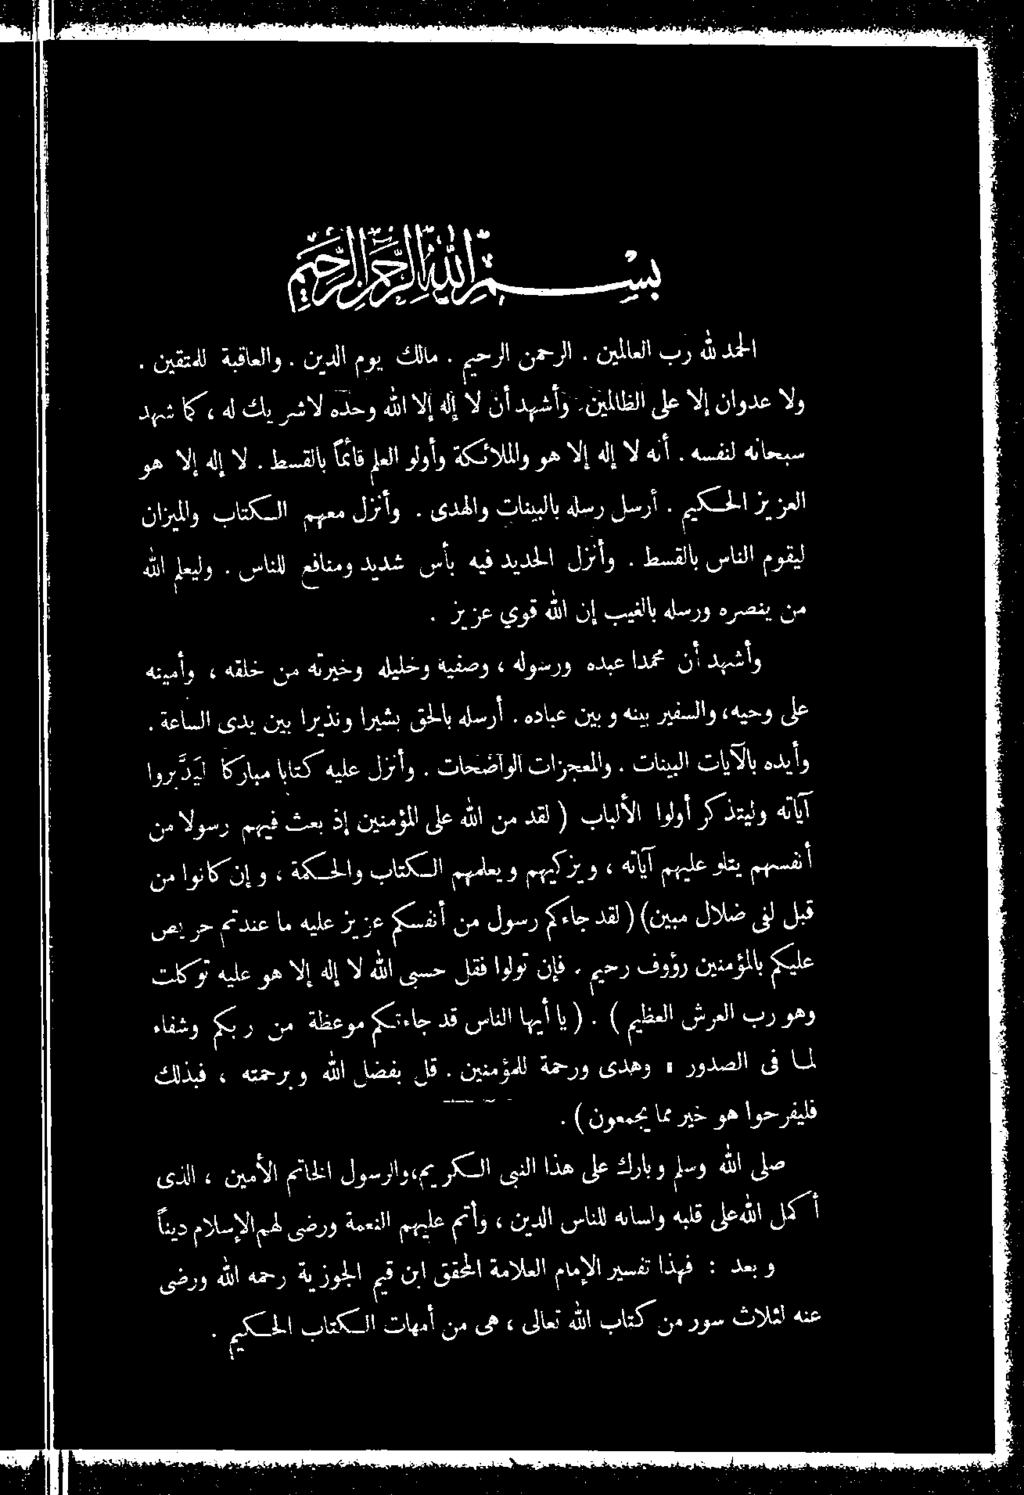 بسم الله الرحمن الرحيم
الحمد لله رب العالمين . الرحمن الرحيم . مالك يوم الدين . والعاقبة للمتقين .
ولا عدوان إلا على الظالمين . وأشهد أن لا إله إلا الله وحده لا شريك له ، كما شهد
سبحانه لنفسه . أنه لا إله إلا هو والملائكة وأولو العلم قائماً بالقسط . لا إله إلا هو
العزيز الحكيم . أرسل رسله بالبينات والهدى . وأنزل معهم الكتاب والميزان
ليقوم الناس بالقسط . وأنزل الحديد فيه بأس شديد ومنافع للناس . وليعلم الله
من ينصره ورسله بالغيب إن الله قوي عزيز .
وأشهد أن محمدا عبده ورسوله ، وصفيه وخليله وخيرته من خلقه ، وأمينه
على وحيه ، والسفير بينه وبين عباده . أرسله بالحق بشيرا ونذيرا بين يدى الساعة .
وأيده بالآيات البينات . والمعجزات الواضحات . وأنزل عليه كتابا مباركا ليَدَّبروا
آياته وليتذكر أولوا الألباب ( لقد من الله على المؤمنين إذ بعث فيهم رسولا من
أنفسهم يتلو عليهم آياته ، ويزكيهم ويعلمهم الكتاب والحكمة ، وإن كانوا من
قبل لفى ضلال مبين ) ( لقد جاءكم رسول من أنفسكم عزيز عليه ما عندتم حريص
عليكم بالمؤمنين رؤوف رحيم . فإن تولوا فقل حسبى الله لا إله إلا هو عليه توكلت
وهو رب العرش العظيم ) . ( يا أيها الناس قد جاءتكم موعظة من ربكم وشفاء
لما فى الصدور وهدى ورحمة للمؤمنين . قل بفضل الله وبرحمته ، فبذلك
فليفرحوا هو خير مما يجمعون ) .
صلى الله وسلم وبارك على هذا النبى الكريم ، والرسول الخاتم الأمين ، الذى
أكمل الله على قلبه ولسانه للناس الدين ، وأتم عليهم النعمة ورضى لهم الإسلام ديناً
وبعد : فهذا تفسير الإمام العلامة المحقق ابن قيم الجوزية رحمه الله ورضى
عنه لثلاث سور من كتاب الله تعالى ، هى من أمهات الكتاب الحكيم .